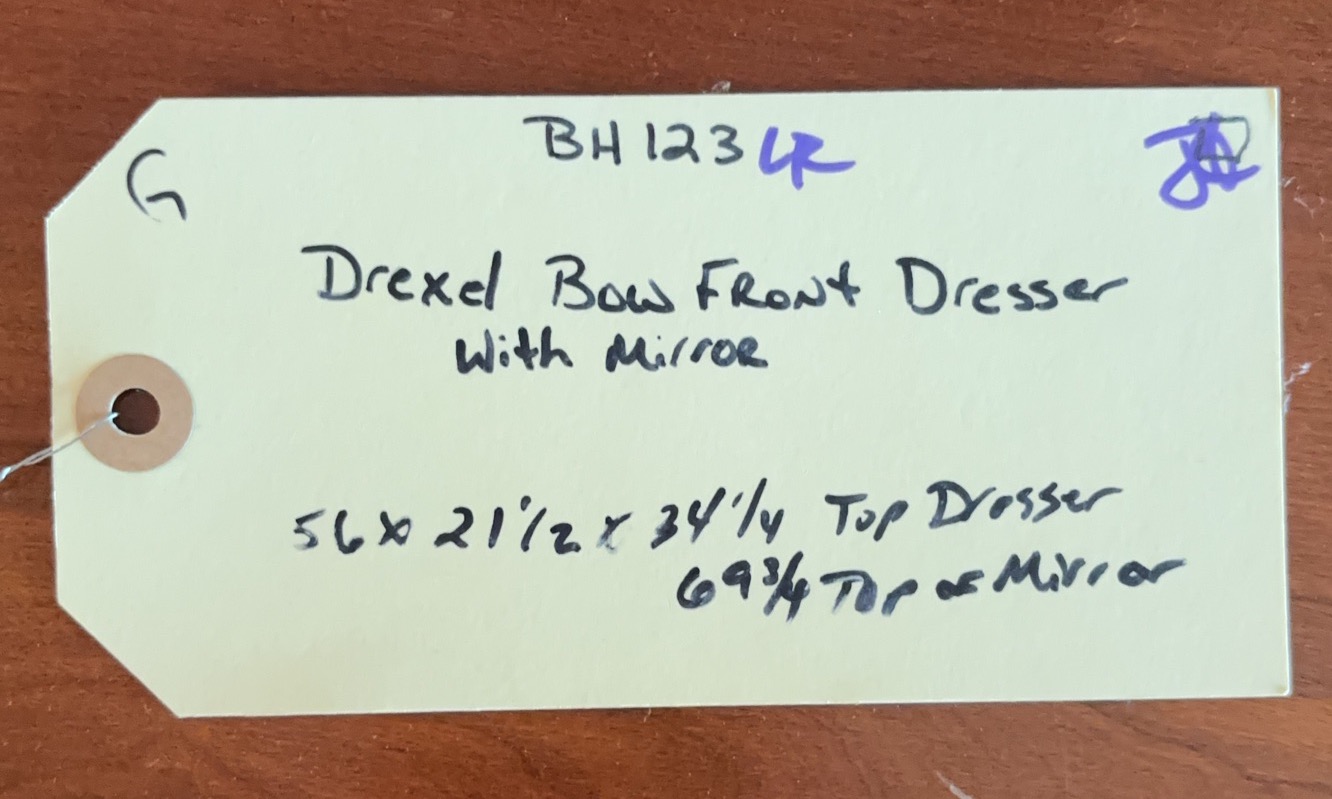 BH123 LR
G
Drexel Bow Front Dresser
With Mirror
56 x 21 1/2 x 34 1/4 Top Dresser
69 3/4 Top of Mirror